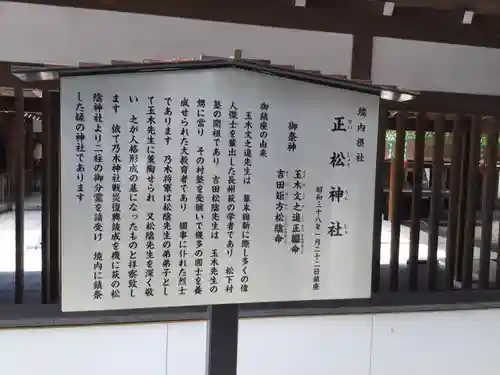 境内摂社
せい しょう じん じゃ
正松神社
昭和三十八年一月二十二日鎮座
御祭神
玉木文之進正韞命
吉田矩方松陰命
御鎮座の由来
玉木文之進先生は 幕末維新に際し多くの偉
人傑士を輩出した長州萩の学者であり 松下村
塾の開祖であり 吉田松陰先生は 玉木先生の
甥に當り その村塾を受継いで幾多の國士を養
成せられた大教育者であり 國事に仆れた烈士
であります 乃木将軍は松陰先生の弟弟子とし
て玉木先生に薫陶せられ 又松陰先生を深く敬
い これが人格形成の基になったものと拝察致し
ます 依て乃木神社戦災復興竣成を機に萩の松
陰神社より二柱の御分霊を請受け 境内に鎮祭
した縁の神社であります